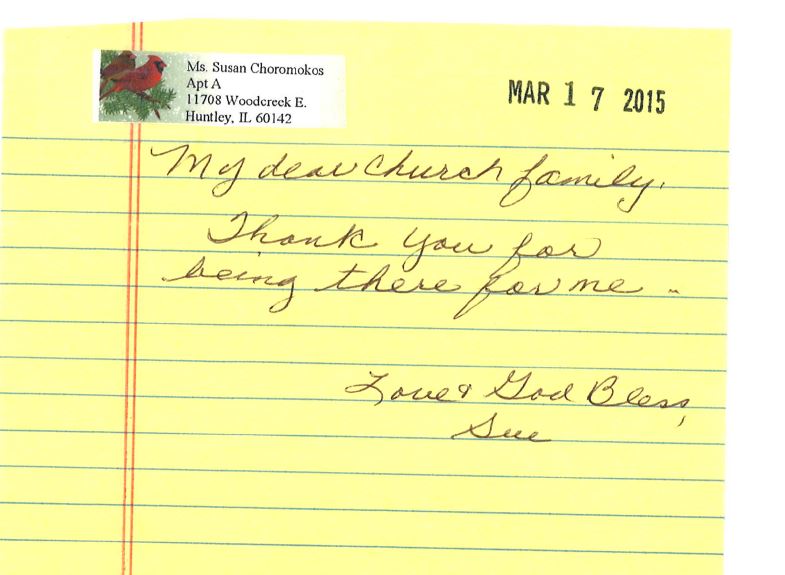 Ms. Susan Choromokos
Apt A
11708 Woodcreek E.
Huntley, IL 60142
MAR 17 2015
My dear church family,
Thank you for
being there for me -
Love & God Bless,
Sue